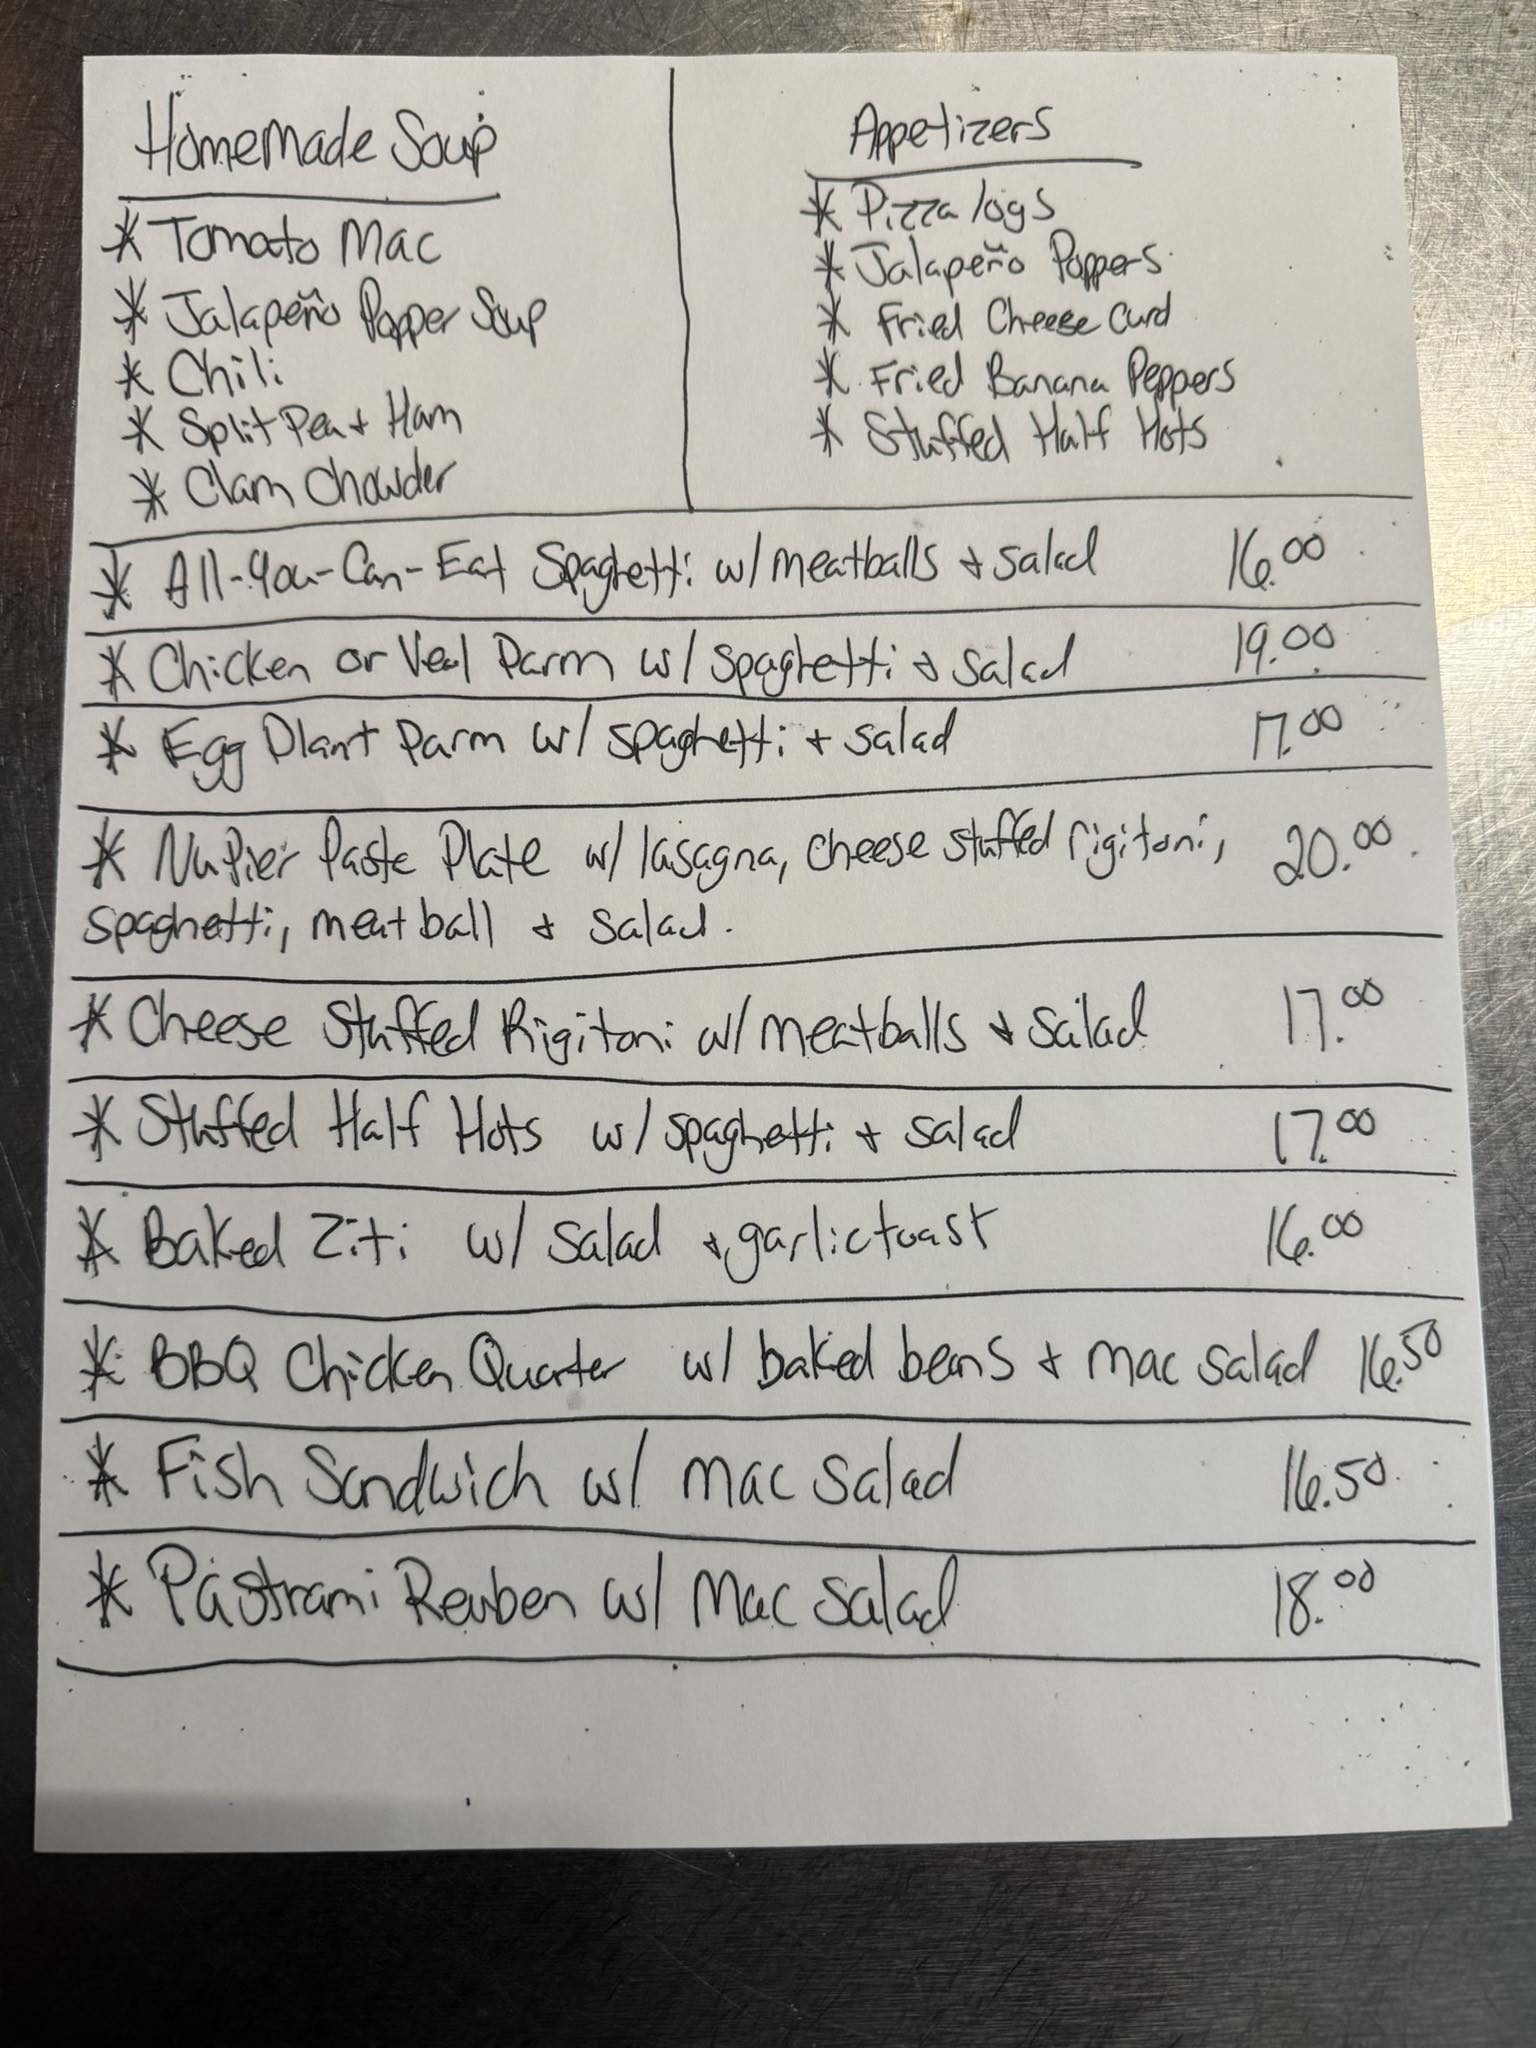 Homemade Soup
* Tomato Mac
* Jalapeño Popper Soup
* Chili
* Split Pea + Ham
* Clam Chowder
Appetizers
* Pizza logs
* Jalapeño Poppers
* Fried Cheese Curd
* Fried Banana Peppers
* Stuffed Half Hots
* All-You-Can-Eat Spaghetti w/ meatballs + salad 16.00
* Chicken or Veal Parm w/ spaghetti + salad 19.00
* Egg Plant Parm w/ spaghetti + salad 17.00
* NuPier Paste Plate w/ lasagna, cheese stuffed rigitoni, 20.00
spaghetti, meatball + salad.
* Cheese Stuffed Rigitoni w/ meatballs + salad 17.00
* Stuffed Half Hots w/ spaghetti + salad 17.00
* Baked Ziti w/ salad + garlic toast 16.00
* BBQ Chicken Quarter w/ baked beans + mac salad 16.50
* Fish Sandwich w/ Mac Salad 16.50
* Pastrami Reuben w/ Mac Salad 18.00